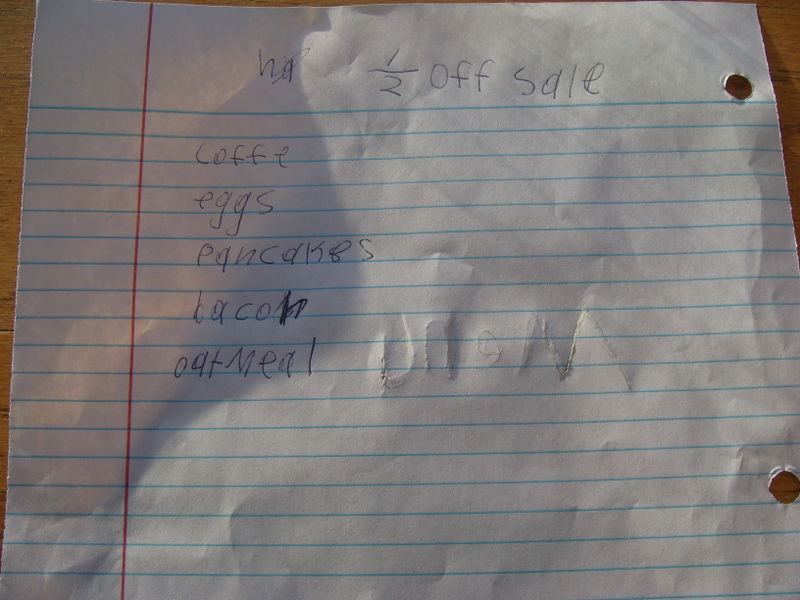 1/2 off sale
coffe
eggs
pancakes
bacon
oatmeal